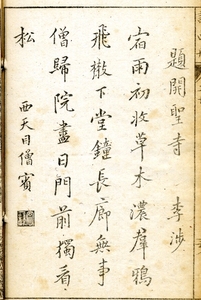 題開聖寺 李涉
宿雨初收草木濃羣鴉
飛散下堂鐘長廊無事
僧歸院盡日門前獨看
松
西天目僧賓